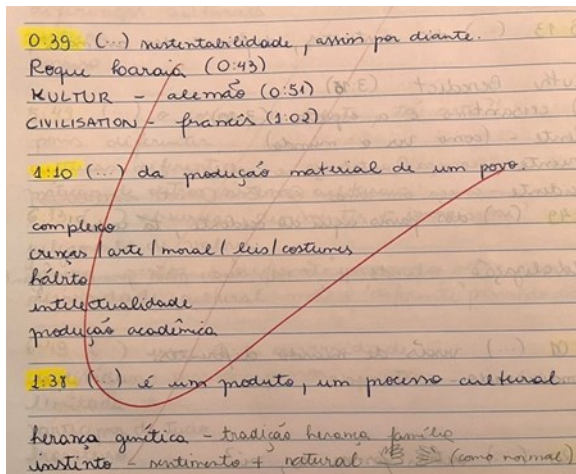 0:39 (...) sustentabilidade, assim por diante.
Roque Laraia (0:43)
KULTUR - alemão (0:51)
CIVILISATION - francês (1:02)
1:10 (...) da produção material de um povo.
complexo
crenças / arte / moral / leis / costumes
hábito
intelectualidade
produção acadêmica
1:38 (...) é um produto, um processo cultural
herança genética - tradição herança família
instinto - sentimento + natural (como normal)